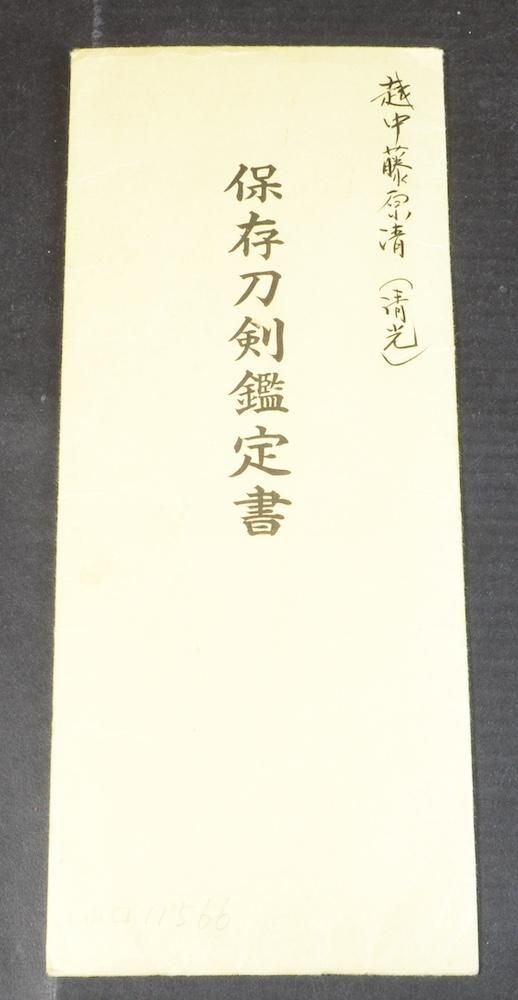 越中藤原清（清光）
保存刀剣鑑定書
11566